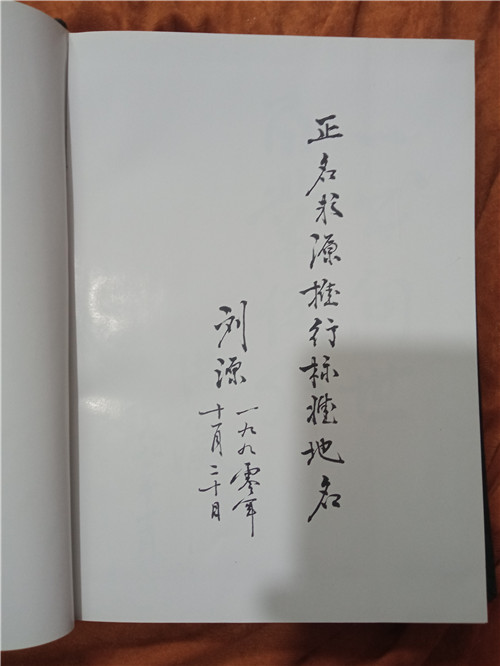 正名求源推行标准地名
刘源
一九九零年
十月二十日